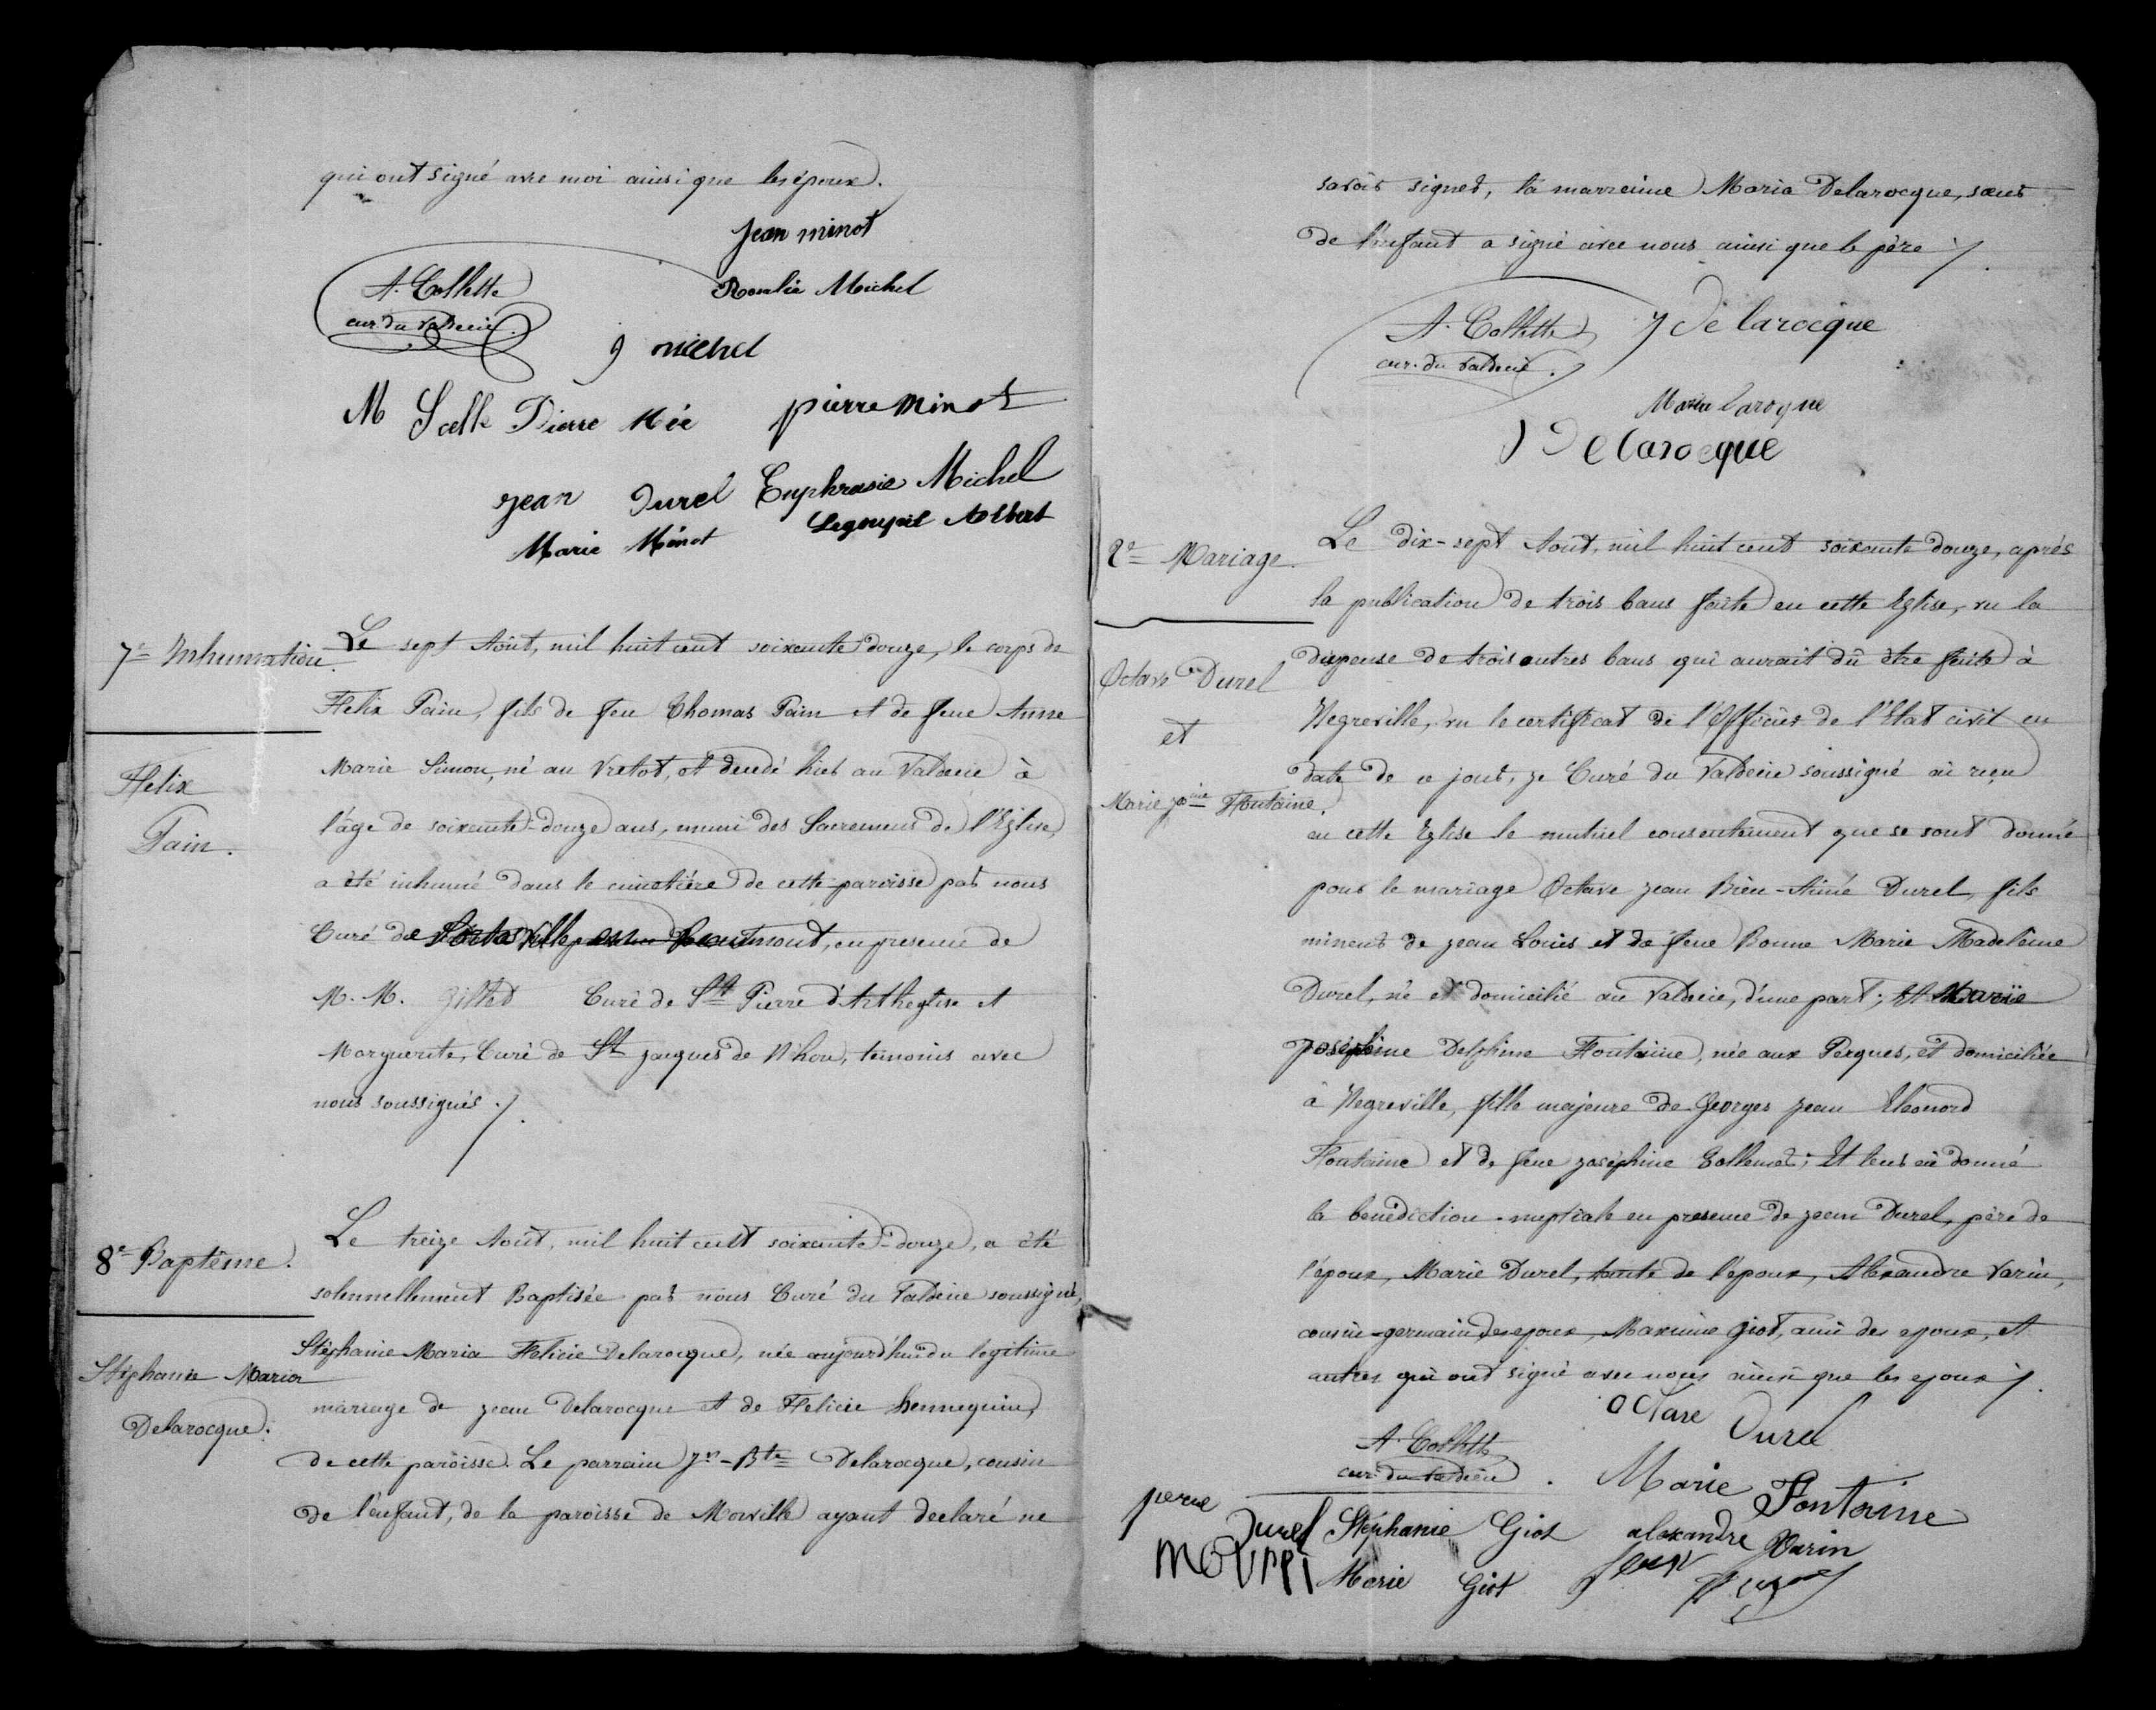 qui ont signé avec moi ainsi que les époux.
jean minot
A. Collette
Rosalie Michel
cur. du Valdecie
j michel
M Scelle Pierre Mée pierre minot
jean Durel Euphrasie Michel
Marie Minot Legoupil Albert
7e Inhumation.
Felix
Pain.
Le sept Août, mil huit cent soixante douze, le corps de
Felix Pain, fils de feu Thomas Pain et de feue Anne
Marie Simon, né au Vretot, et decedé hier au Valdecie à
l'âge de soixante-douze ans, muni des Sacremens de l'Eglise,
a été inhumé dans le cimetière de cette paroisse par nous
Curé de Sortosville en Beaumont, en presence de
M. M. Gillet Curé de St Pierre d'Artheglise et
Marguerite, Curé de St Jacques de Néhou, témoins avec
nous soussignés ./.
8e Baptême.
Stéphanie Maria
Delarocque.
Le treize Août, mil huit cent soixante-douze, a été
solennellement Baptisée par nous Curé du Valdecie soussigné,
Stéphanie Maria Felicie Delarocque, née aujourd'hui du legitime
mariage de jean Delarocque et de Felicie hennequin,
de cette paroisse. Le parrain Jn-Bte Delarocque, cousin
de l'enfant, de la paroisse de Morville ayant declaré ne
savoir signer, la marreine Maria Delarocque, sœur
de l'enfant a signé avec nous ainsi que le père ./.
A. Collette j Delarocque
cur. du Valdecie.
Maria larogne
J Delarocque
2e Mariage.
Octave Durel
et
Marie Jphine Fontaine.
Le dix-sept Août, mil huit cent soixante douze, après
la publication de trois bans faite en cette Eglise, vu la
dispense de trois autres bans qui aurait dû être faite à
Negreville, vu le certificat de l'Officier de l'Etat civil en
date de ce jour, je Curé du Valdecie soussigné ai reçu
en cette Eglise le mutuel consentement que se sont donné
pour le mariage Octave Jean Bien-Aimé Durel, fils
mineur de Jean Louis et de feue Bonne Marie Madeleine
Durel, né et domicilié au Valdecie, d'une part; Et Marie
Joséphine Delphine Fontaine, née aux Perques, et domiciliée
à Negreville, fille majeure de Georges Jean Eleonord
Fontaine et de feue Joséphine Gollemer; Et leur ai donné
la benediction nuptiale en presence de jean Durel, père de
l'époux, Marie Durel, tante de l'epoux, Alexandre Varin,
cousin-germain des epoux, Maxime Giot, ami des epoux, et
autres qui ont signé avec nous ainsi que les epoux ./.
Octave Durel
A. Collette
cur. du Valdecie. Marie Fontaine
pierre Durel Stéphanie Giot alexandre Varin
Marie Giot